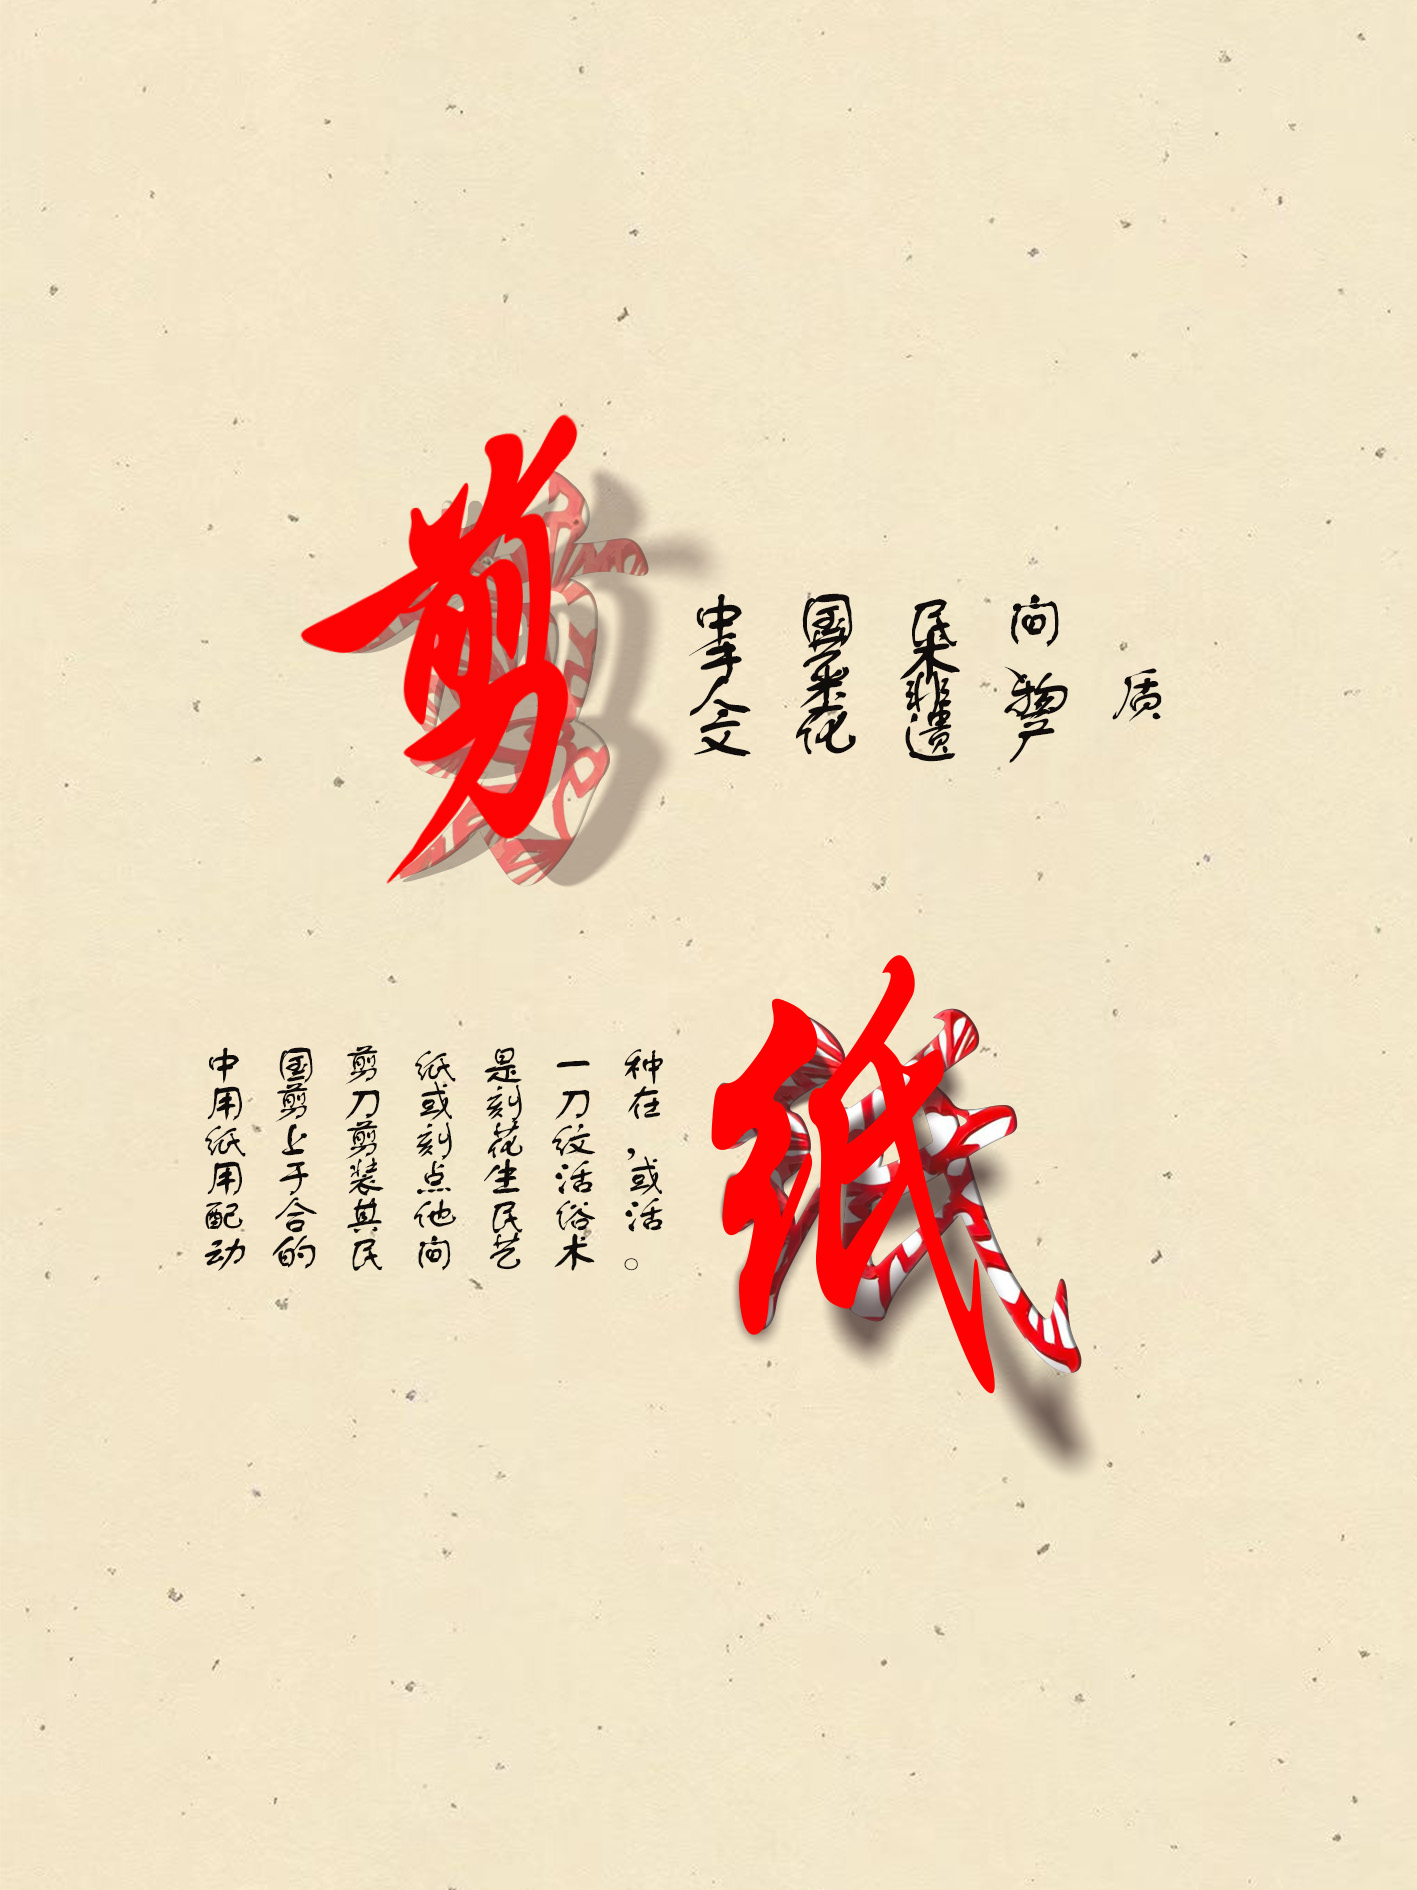 剪
中国民间
手术
人类非物质
文化遗产
纸
中国剪纸是一种
用剪刀或刻刀在
纸上剪刻花纹,
用于装点生活或
配合其他民俗活
动的民间艺术。